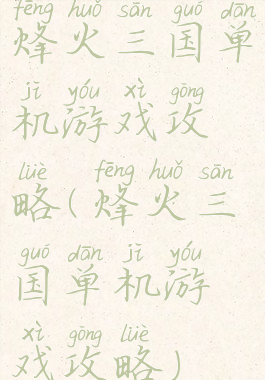 fēng huǒ sān guó dān
烽火三国单
jī yóu xì gōng
机游戏攻
lüè fēng huǒ sān
略(烽火三
guó dān jī yóu
国单机游
xì gōng lüè
戏攻略)